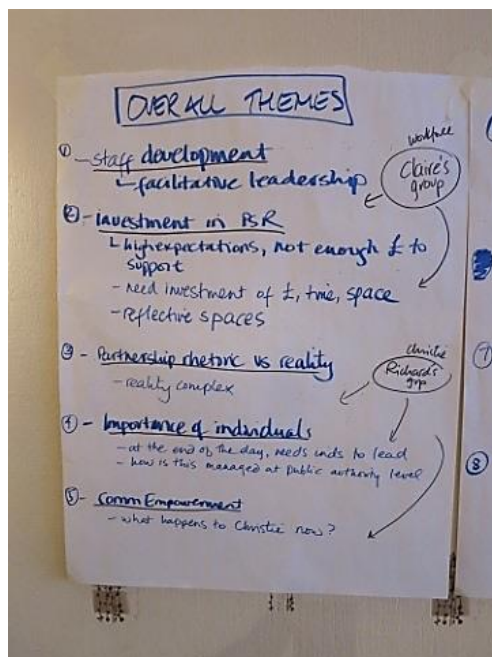 OVERALL THEMES
① - staff development
└ facilitative leadership
workforce
Claire's
group
② - investment in PSR
└ high expectations, not enough £ to
support
- need investment of £, time, space
- reflective spaces
③ - Partnership rhetoric vs reality
- reality complex
christie
Richard's
grp
④ - Importance of individuals
- at the end of the day, needs inds to lead
- how is this managed at public authority level
⑤ - Comm Empowerment
- what happens to Christie now?
⑦
⑧